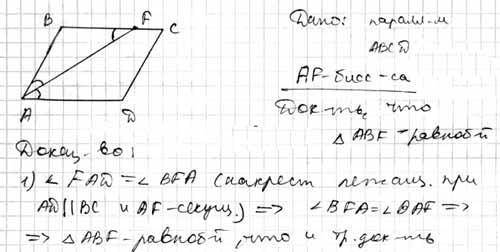 B F C
A D
Дано: паралл-м
ABCD
AF-бисс-са
Док-ть, что
△ ABF-равноб-й
Доказ-во:
1) ∠ FAD = ∠ BFA (накрест лежащ. при
AD||BC и AF-секущ.) => ∠BFA=∠BAF =>
=> △ ABF-равноб-й, что и тр. док-ть